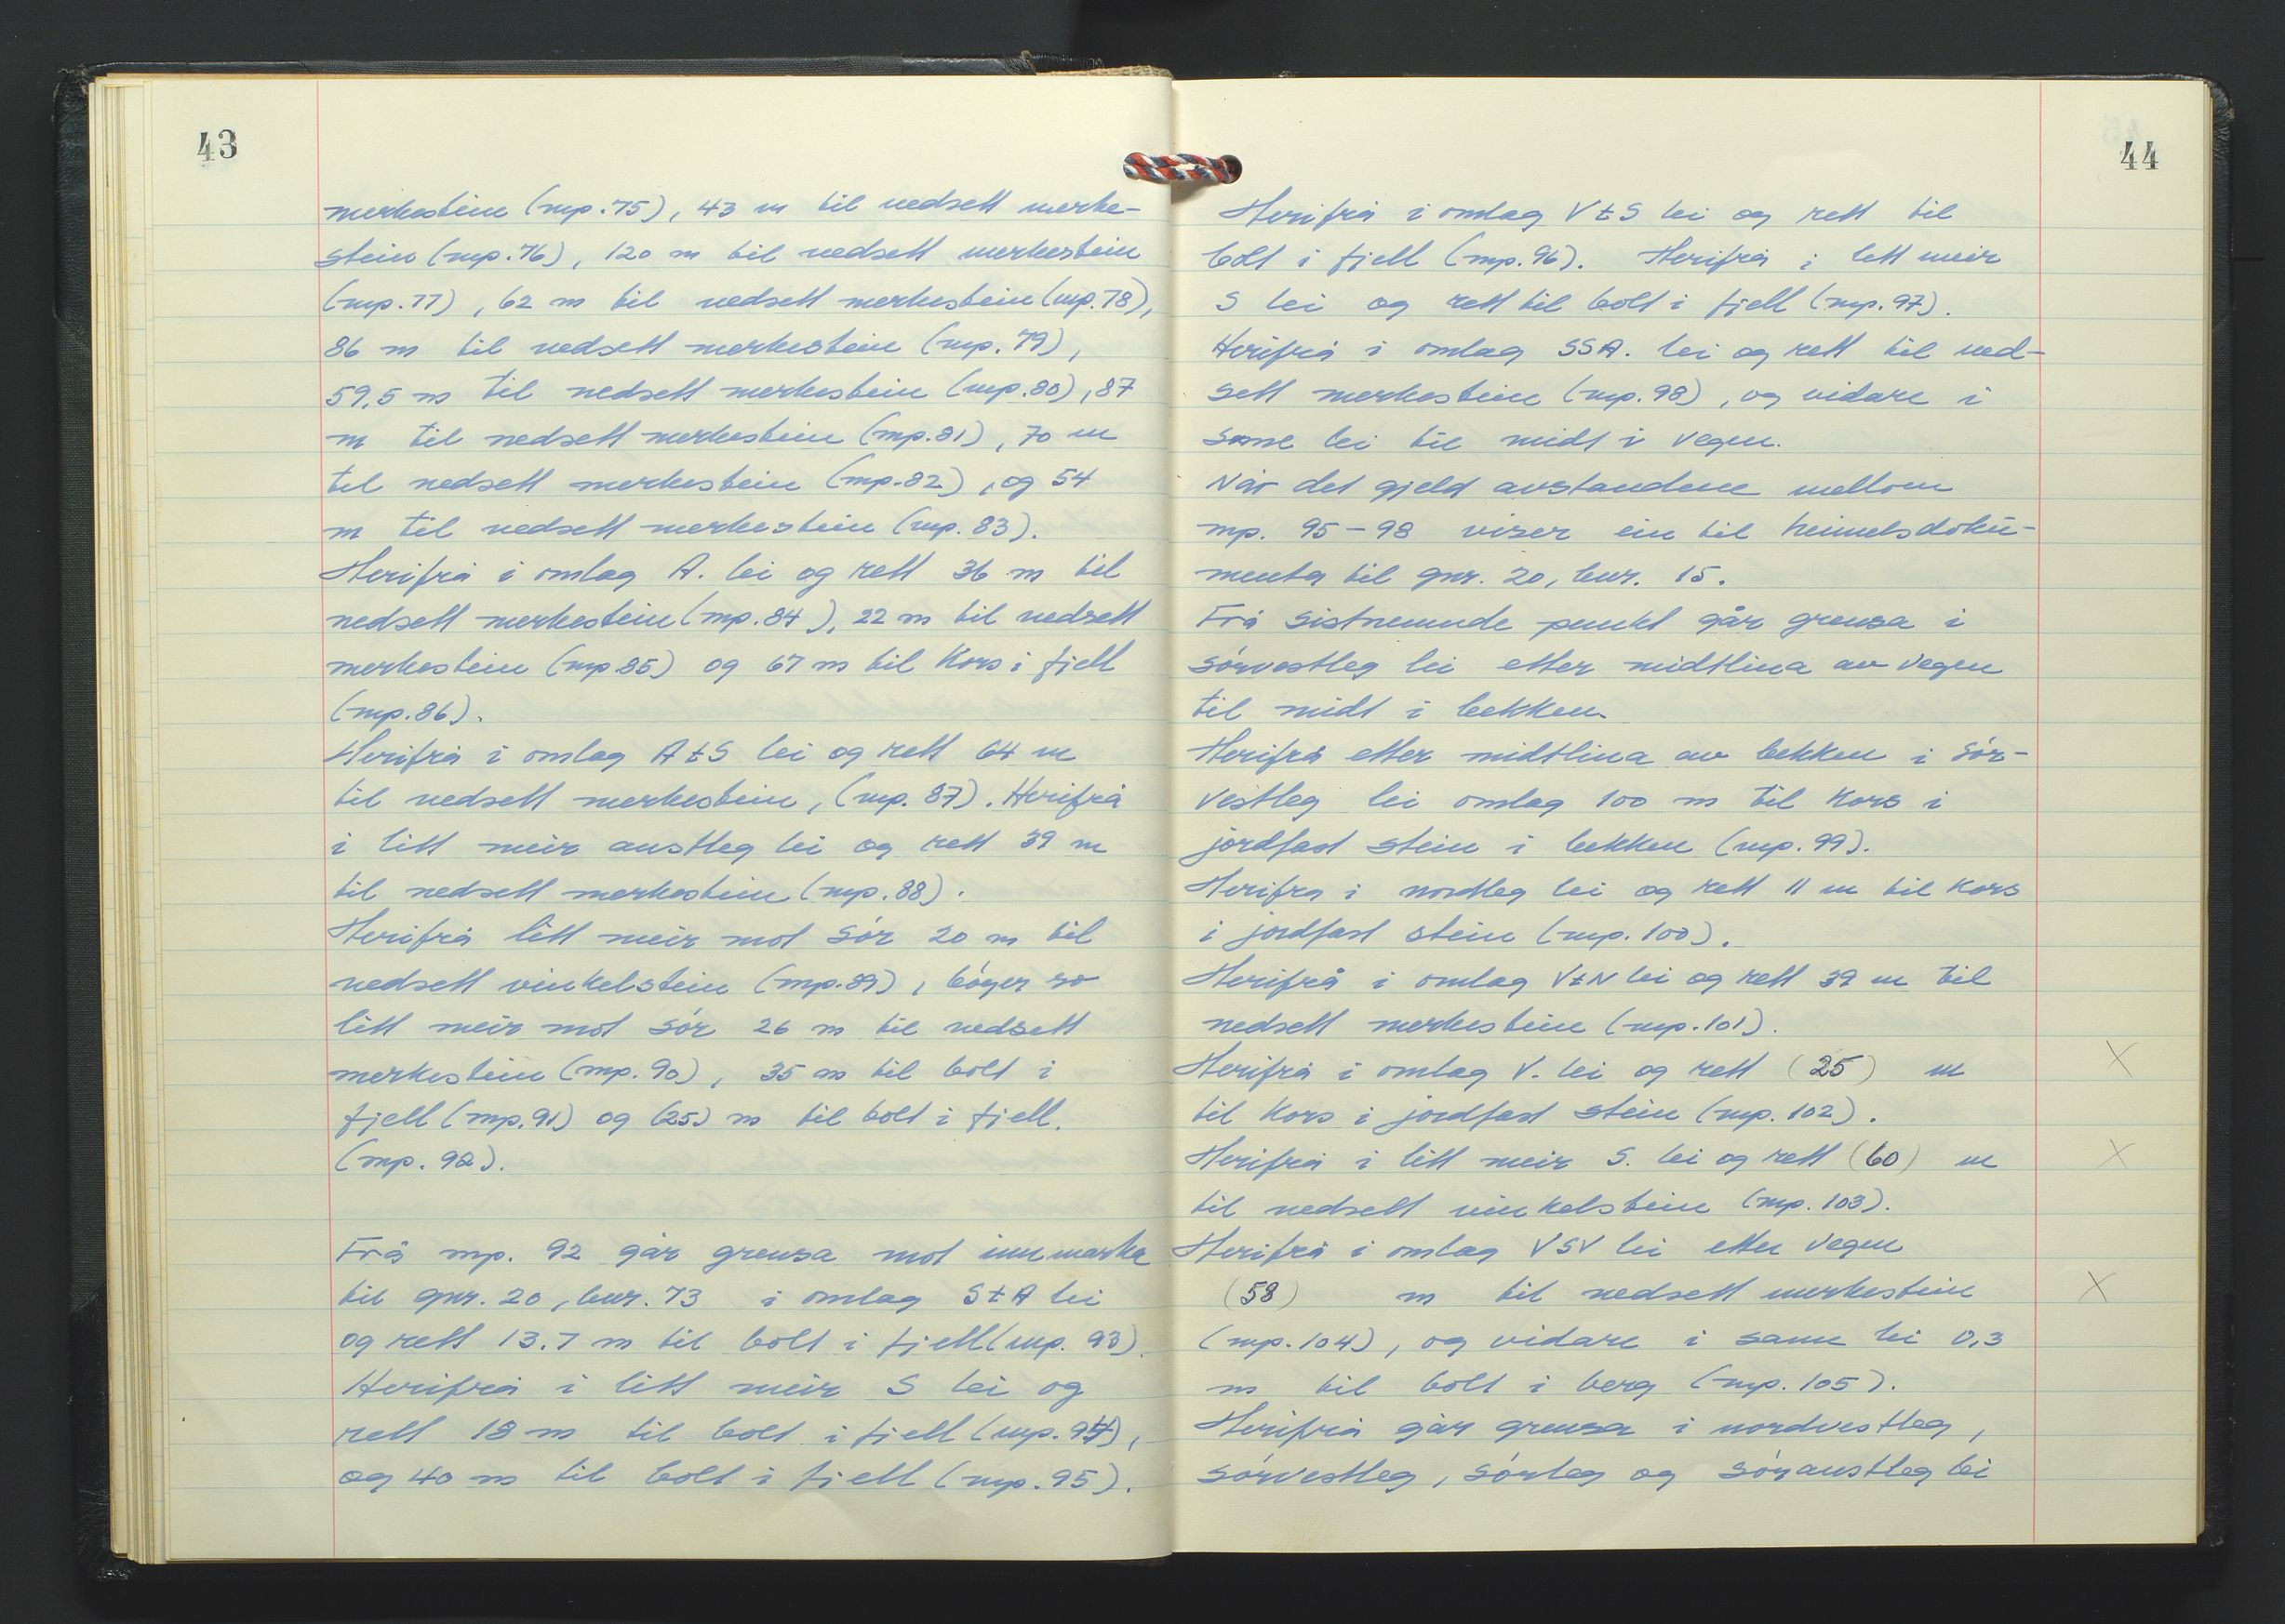 43
merkestein (mp.75), 43 m til nedsett merke-
stein (mp.76), 120 m til nedsett merkestein
(mp.77), 62 m til nedsett merkestein (mp.78),
86 m til nedsett merkestein (mp.79),
59,5 m til nedsett merkestein (mp.80), 87
m til nedsett merkestein (mp.81), 70 m
til nedsett merkestein (mp.82), og 54
m til nedsett merkestein (mp.83).
Herifrå i omlag A. lei og rett 36 m til
nedsett merkestein (mp.84), 22 m til nedsett
merkestein (mp 85) og 67 m til Kors i fjell
(mp.86).
Herifrå i omlag AtS lei og rett 64 m
til nedsett merkestein, (mp. 87). Herifrå
i litt meir austleg lei og rett 39 m
til nedsett merkestein (mp.88).
Herifrå litt meir mot sør 20 m til
nedsett vinkelstein (mp.89), bøyer so
litt meir mot sør 26 m til nedsett
merkestein (mp.90), 35 m til bolt i
fjell (mp.91) og (25) m til bolt i fjell.
(mp. 92).
Frå mp. 92 går grensa mot innmarka
til gnr. 20, bnr. 73 i omlag StA lei
og rett 13.7 m til bolt i fjell (mp. 93).
Herifrå i litt meir S lei og
rett 18 m til bolt i fjell (mp.94),
og 40 m til bolt i fjell (mp.95).
44
Herifrå i omlag VtS lei og rett til
bolt i fjell (mp.96). Herifrå i litt meir
S lei og rett til bolt i fjell (mp.97).
Herifrå i omlag SSA. lei og rett til ned-
sett merkestein (mp.98), og vidare i
same lei til midt i vegen.
Når det gjeld avstandene mellom
mp. 95-98 viser ein til heimelsdoku-
menta til gnr. 20, bnr. 15.
Frå sistnemnde punkt går grensa i
sørvestleg lei etter midtlina av vegen
til midt i bekken.
Herifrå etter midtlina av bekken i sør-
vestleg lei omlag 100 m til Kors i
jordfast stein i bekken (mp.99).
Herifra i nordleg lei og rett 11 m til Kors
i jordfast stein (mp.100).
Herifrå i omlag VtN lei og rett 39 m til
nedsett merkestein (mp.101).
Herifrå i omlag V. lei og rett (25) m X
til Kors i jordfast stein (mp.102).
Herifrå i litt meir S. lei og rett (60) m X
til nedsett vinkelstein (mp.103).
Herifrå i omlag VSV lei etter vegen
(58) m til nedsett merkestein X
(mp.104), og vidare i same lei 0,3
m til bolt i berg (mp.105).
Herifrå går grensa i nordvestleg,
sørvestleg, sørleg og søraustleg lei